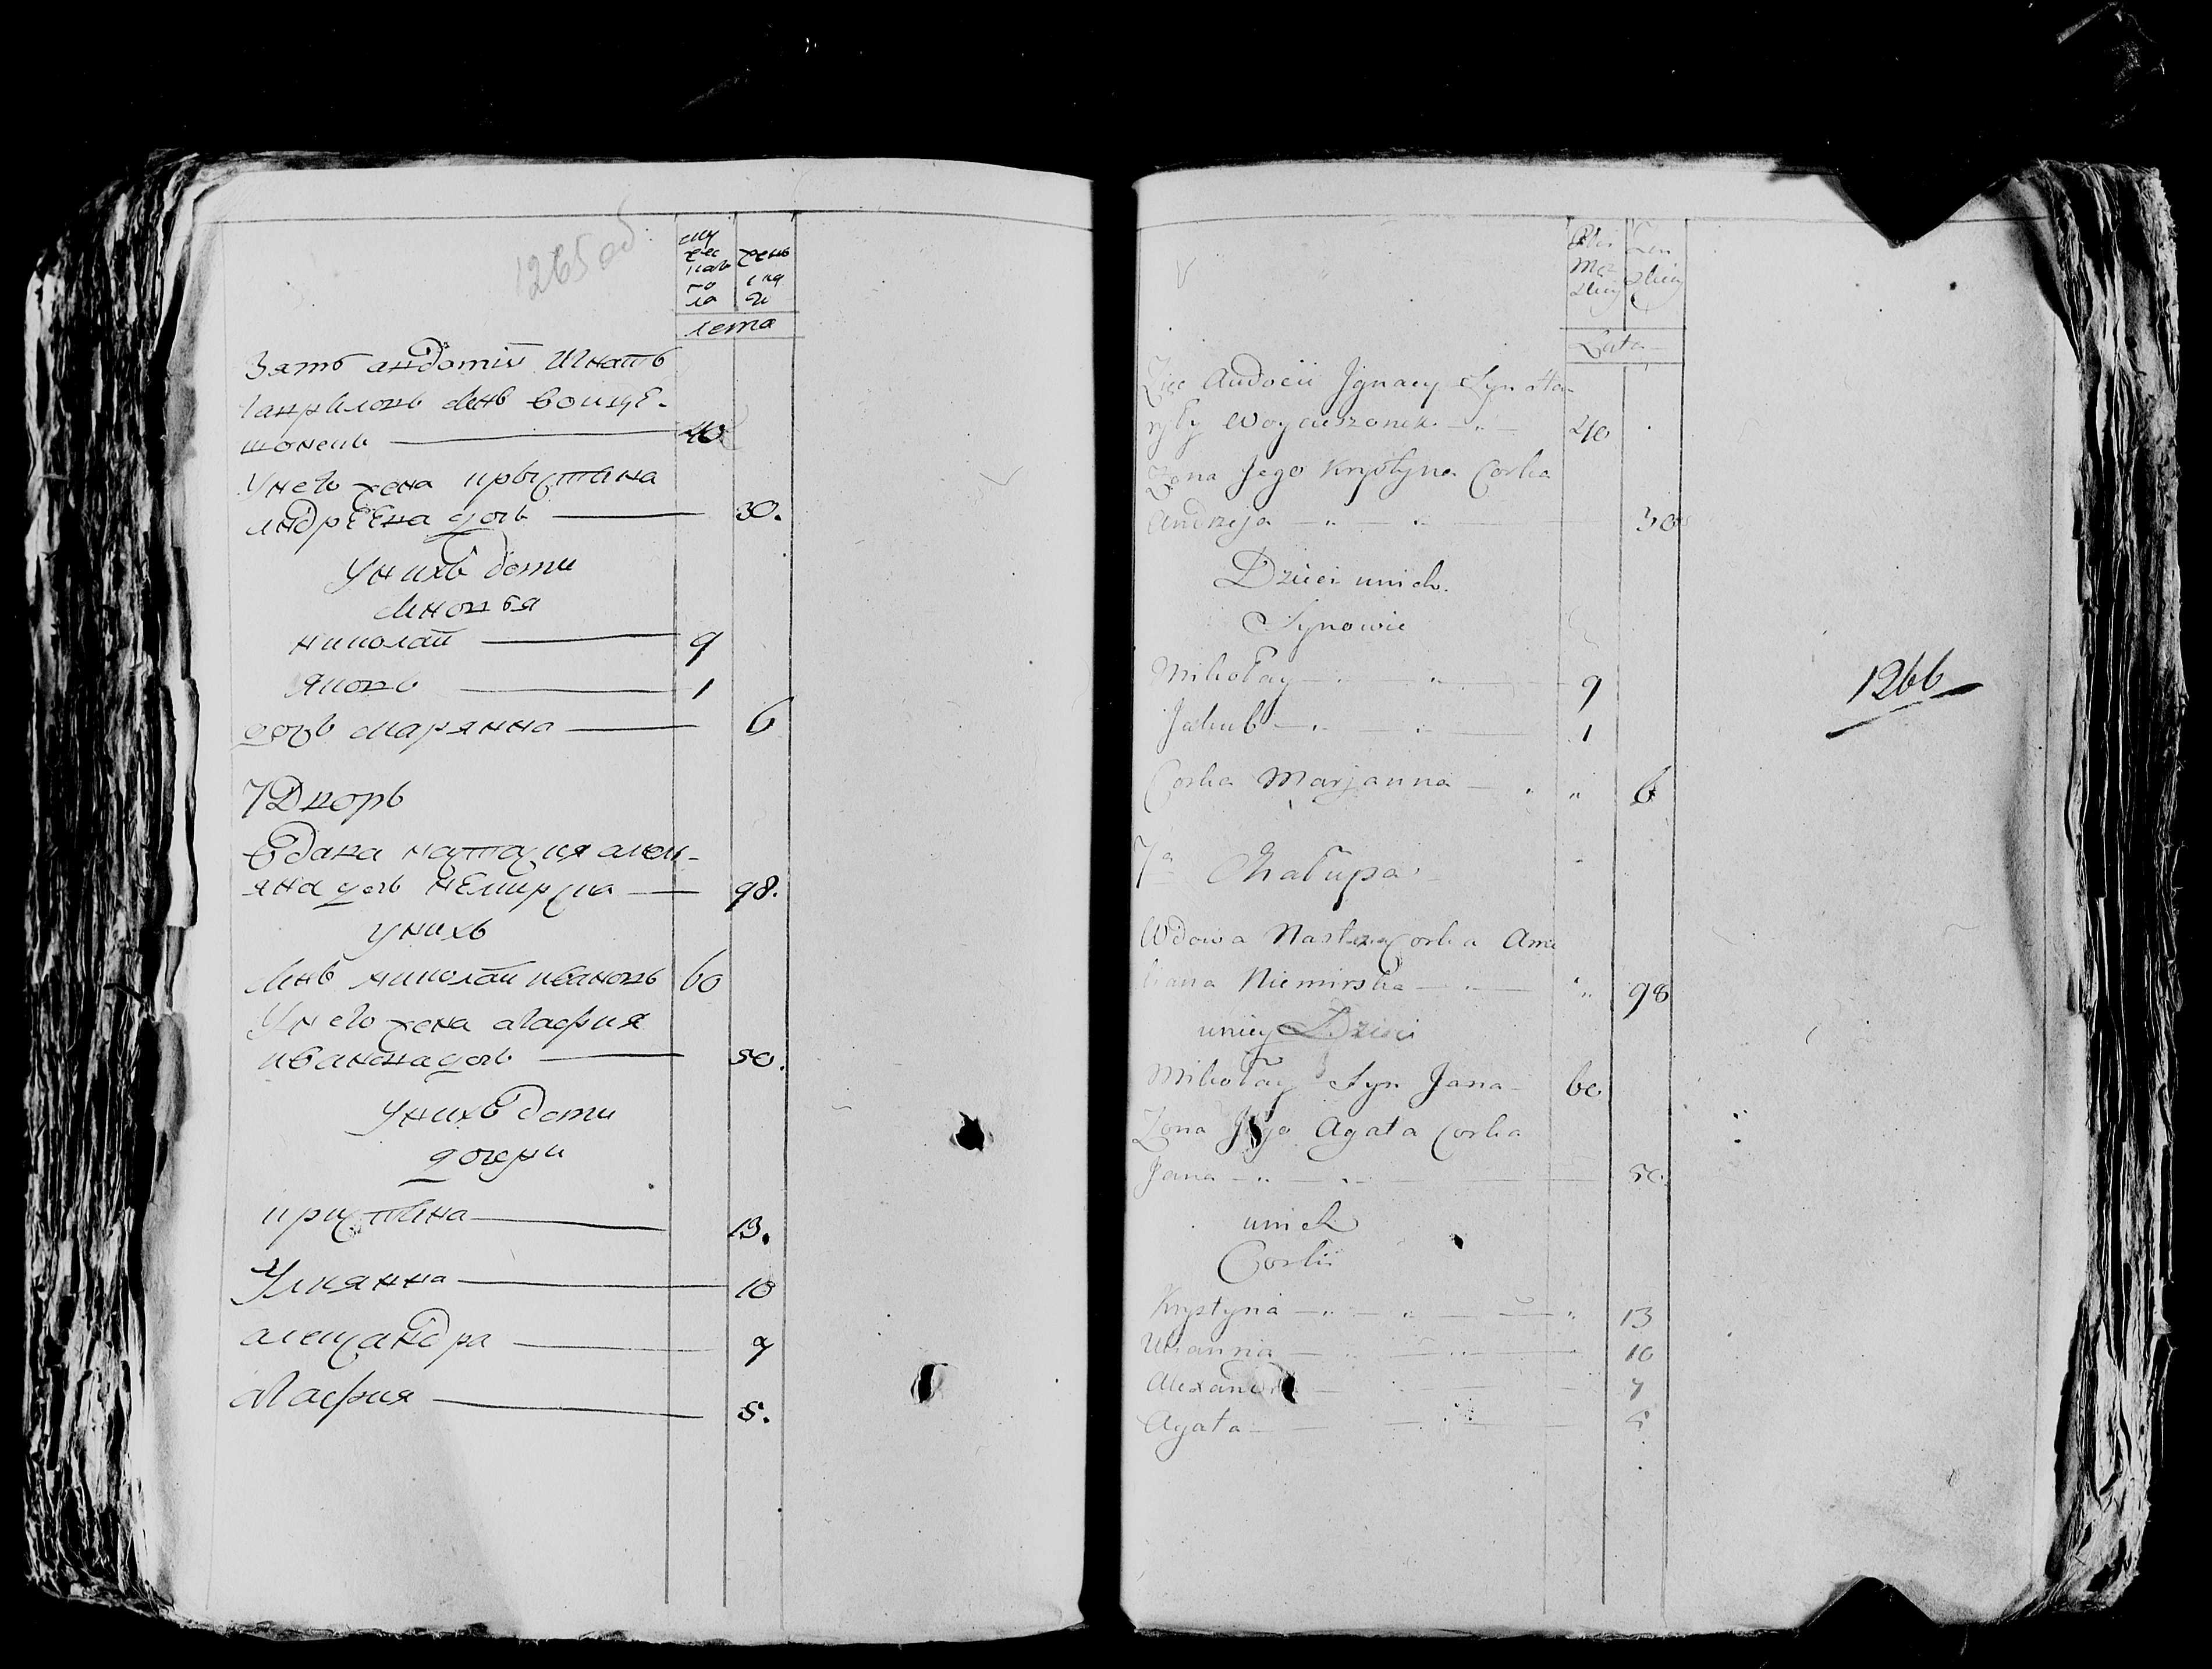 1265об
муж
ска
го
женс
ка
го
лета
Зять андотiи Игнатъ
Гаврiловъ Синъ воище-
шонекъ 40
Унего жена крыстина
Андреева дочь 30.
Унихъ дети
Синовья
николай 9
Яковъ 1
дочь Марянна 6
7 Дворъ
вдова настасия
яна дочь Немирска 98.
унихъ
Синъ николай ивановъ 60
Унего жена агафия
иванова дочь 50.
Унихъ дети
дочери
кристина 13.
Улиянна 10
александра 7
Агафия 5.
Płci
Męz
skiej
Żen
skiej
Lata
Zięc Audocii Jgnacy Syn
Woyciuszonek 40
Żona Jego Krystyna Corka
Andrzeja 30
Dzieci unich.
Synowie
Mikołay 9
Jakub 1
Corka Marjanna 6
1266
7a Chałupa
Wdowa Corka Ame
liana Niemirska 98
uniey Dzieci
Mikołay Syn Jana 60
Żona Jego Agata Corka
Jana 50.
unich
Corki
Krystyna 13
Ulianna 10
Alexandra 7
Agata 5